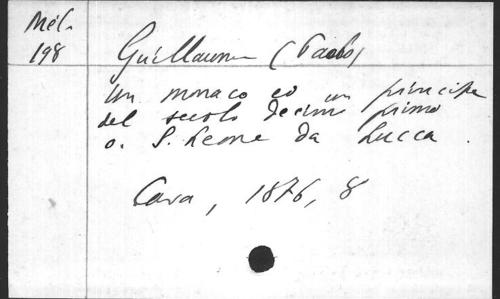 Mél.
198
Guillaume (Paolo)
Un monaco ed un principe
del secolo decimo primo
o. S. Leone da Lucca.
Cava, 1876, 8